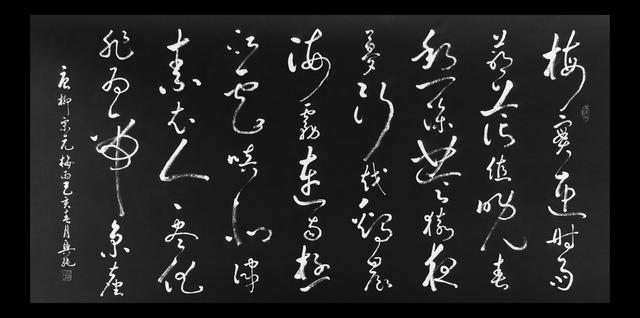 梅實迎时雨
蒼茫值晚春
愁深楚猿夜
夢断越鷄晨
海霧連南極
江雲暗北津
素衣今盡化
非為帝京塵
唐柳宗元梅雨己亥春月